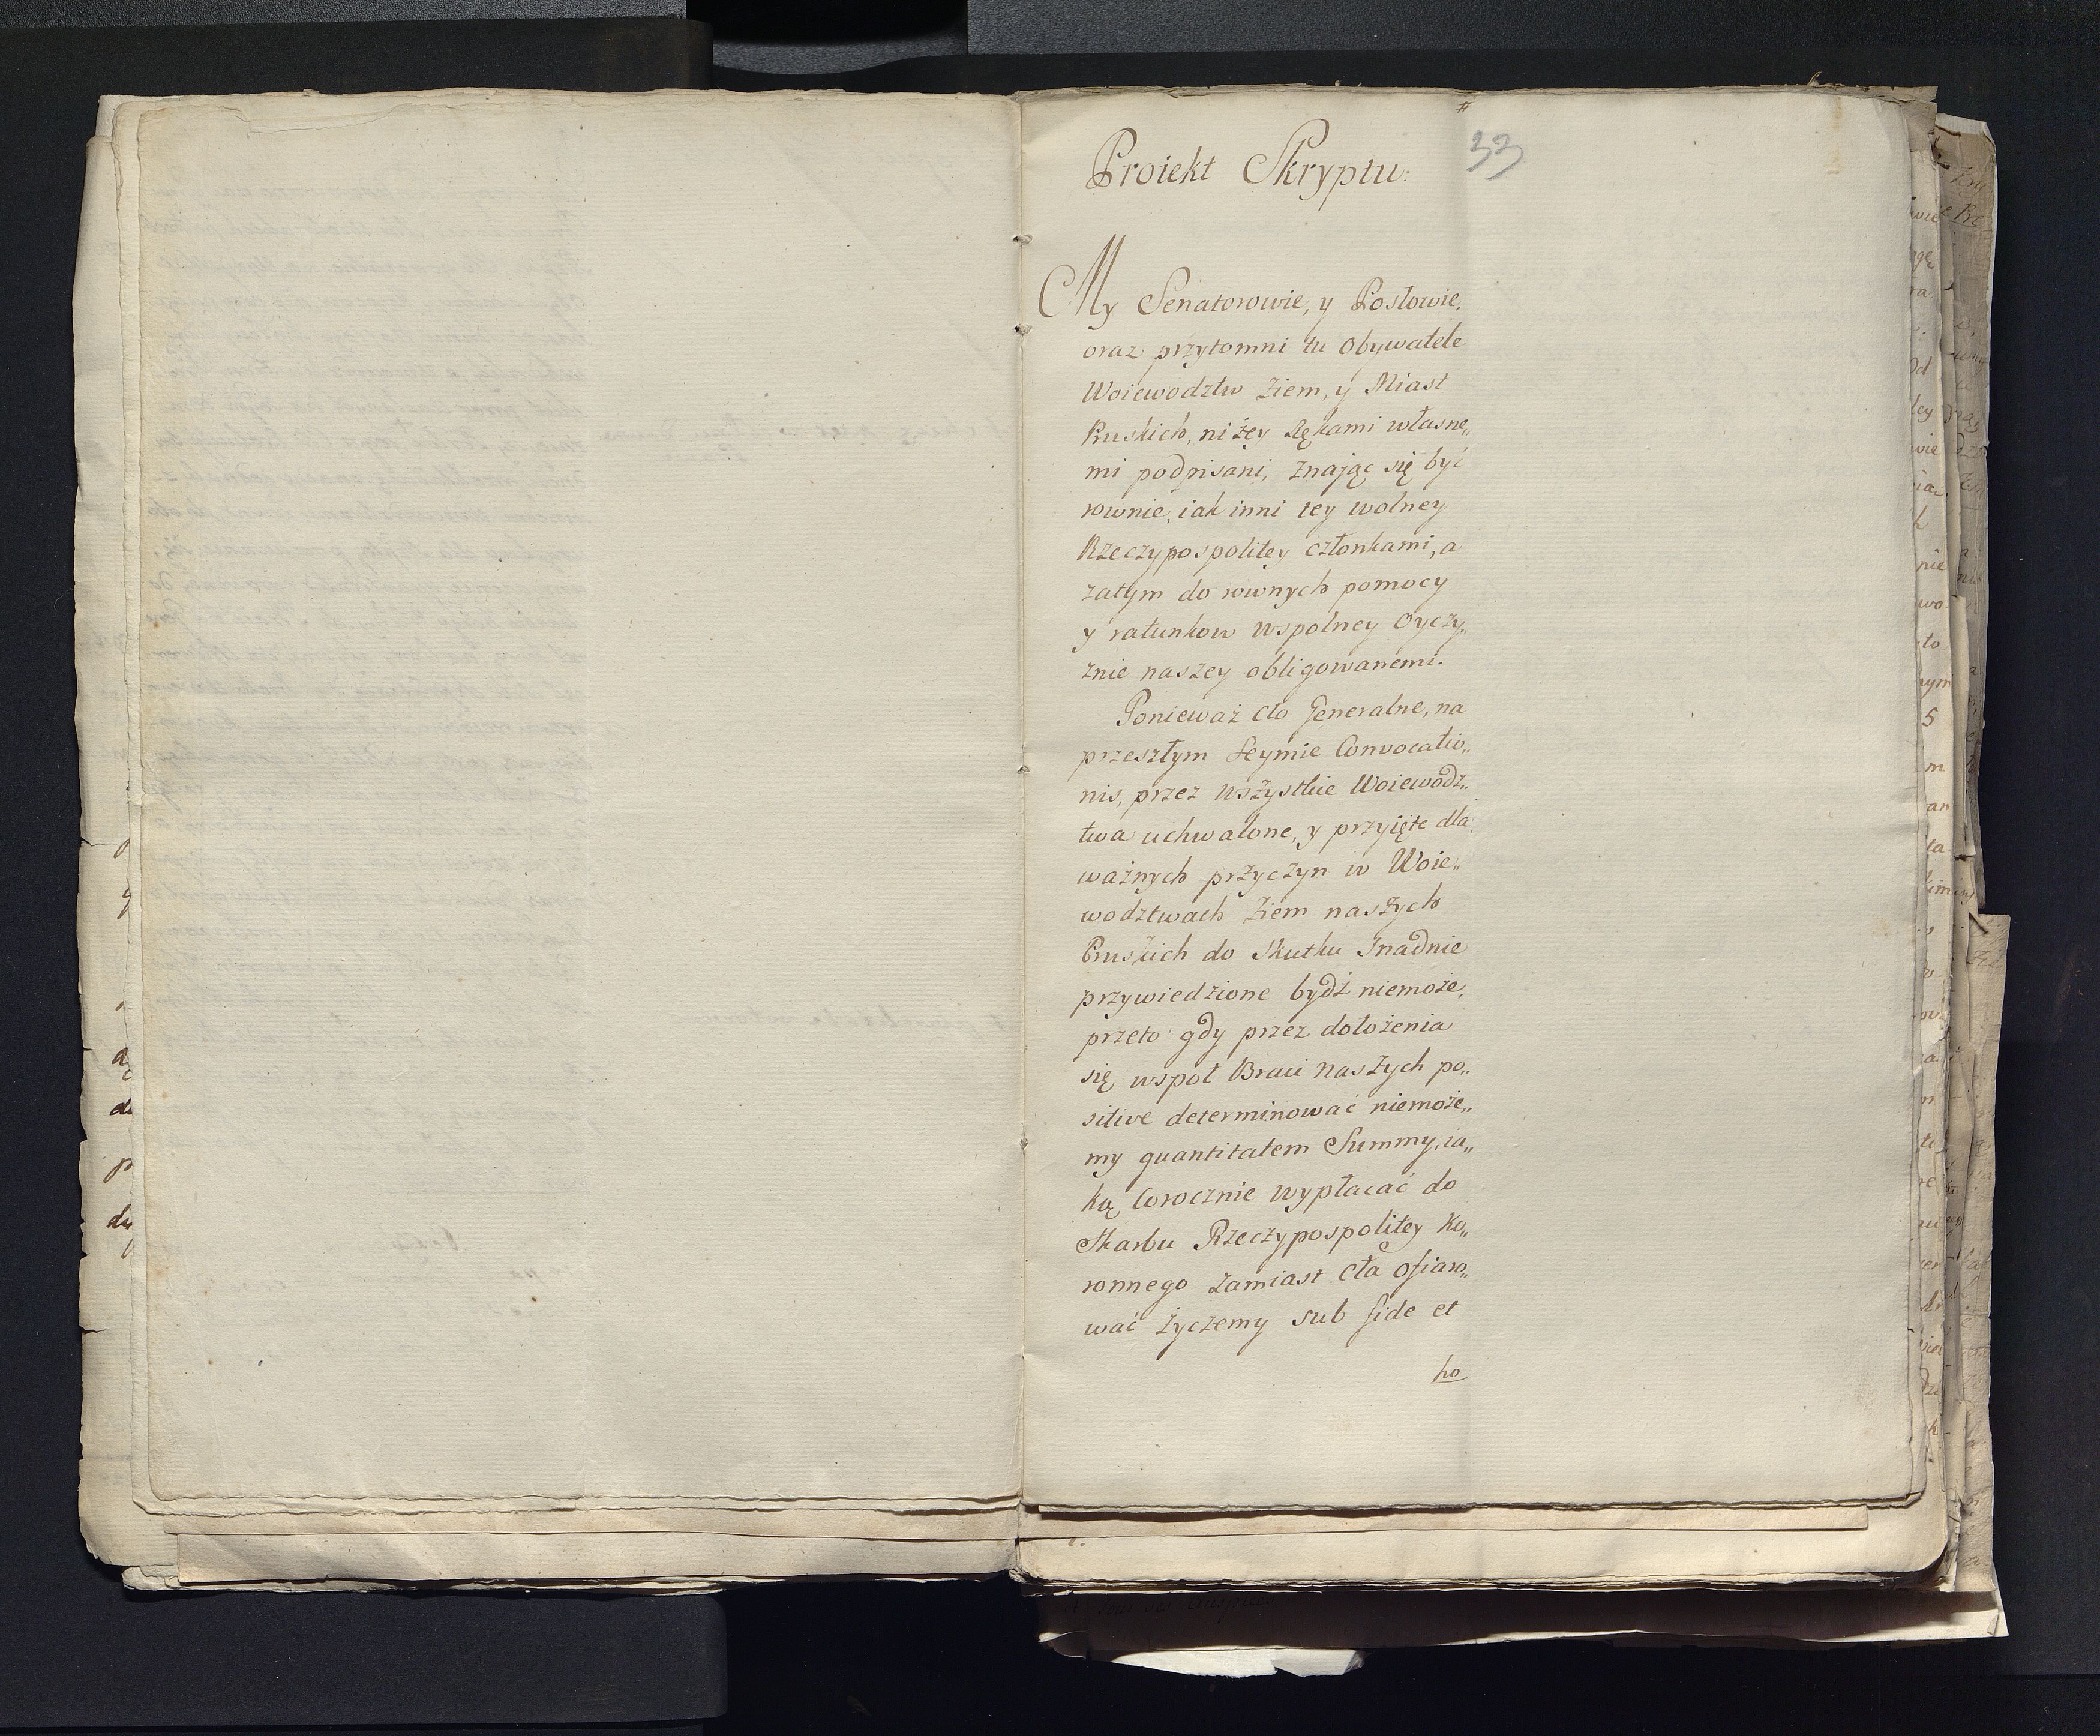 33
Proiekt Skryptu:
My Senatorowie, y Posłowie,
oraz przytomni tu Obywatele
Woiewodztw Ziem, y Miast
Pruskich, niżey Rękami własne„
mi podpisani, znając się być
rownie, iak inni tey wolney
Rzeczypospolitey członkami, a
zatym do rownych pomocy
y ratunkow wspolney Oyczy„
znie naszey obligowanemi.
Ponieważ Cło Generalne, na
przeszłym Seymie Convocatio„
nis, przez wszystkie Woiewodz„
twa uchwalone, y przyięte dla
ważnych przyczyn w Woie„
wodztwach Ziem naszych
Pruskich do Skutku Snadnie
przywiedzione bydź niemoże,
przeto gdy przez dołożenia
się wspoł Braci naszych po„
sitive determinować niemoże„
my quantitatem Summy, ia„
ką Corocznie wypłacać do
Skarbu Rzeczypospolitey Ko„
ronnego zamiast Cła ofiaro„
wać życzemy sub fide et
ho